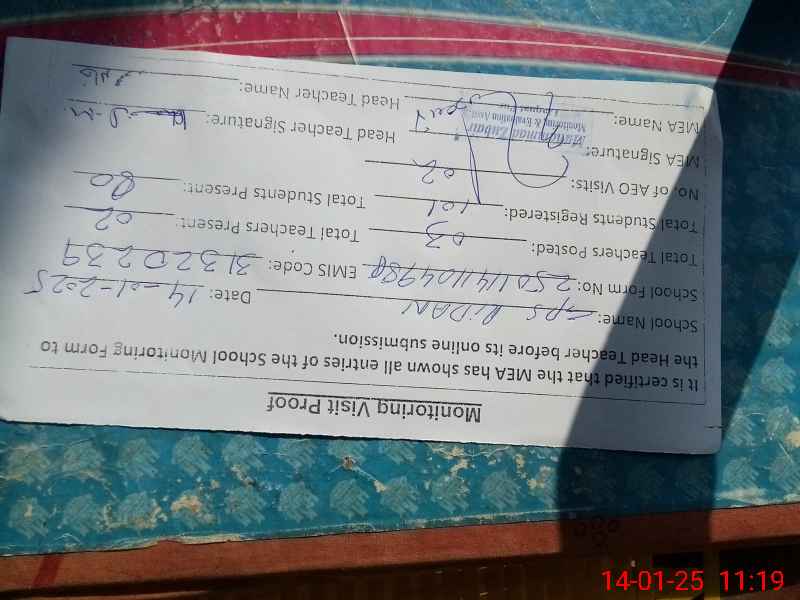 Monitoring Visit Proof
It is certified that the MEA has shown all entries of the School Monitoring Form to
the Head Teacher before its online submission.
School Name: GPS Date: 14-01-2025
School Form No: EMIS Code: 31320239
Total Teachers Posted: 03 Total Teachers Present: 02
Total Students Registered: 101 Total Students Present: 80
No. of AEO Visits: 02
MEA Signature: Head Teacher Signature:
Muhammad Zubair
Monitoring & Evaluation Assistant
MEA Name: Head Teacher Name:
14-01-25 11:19